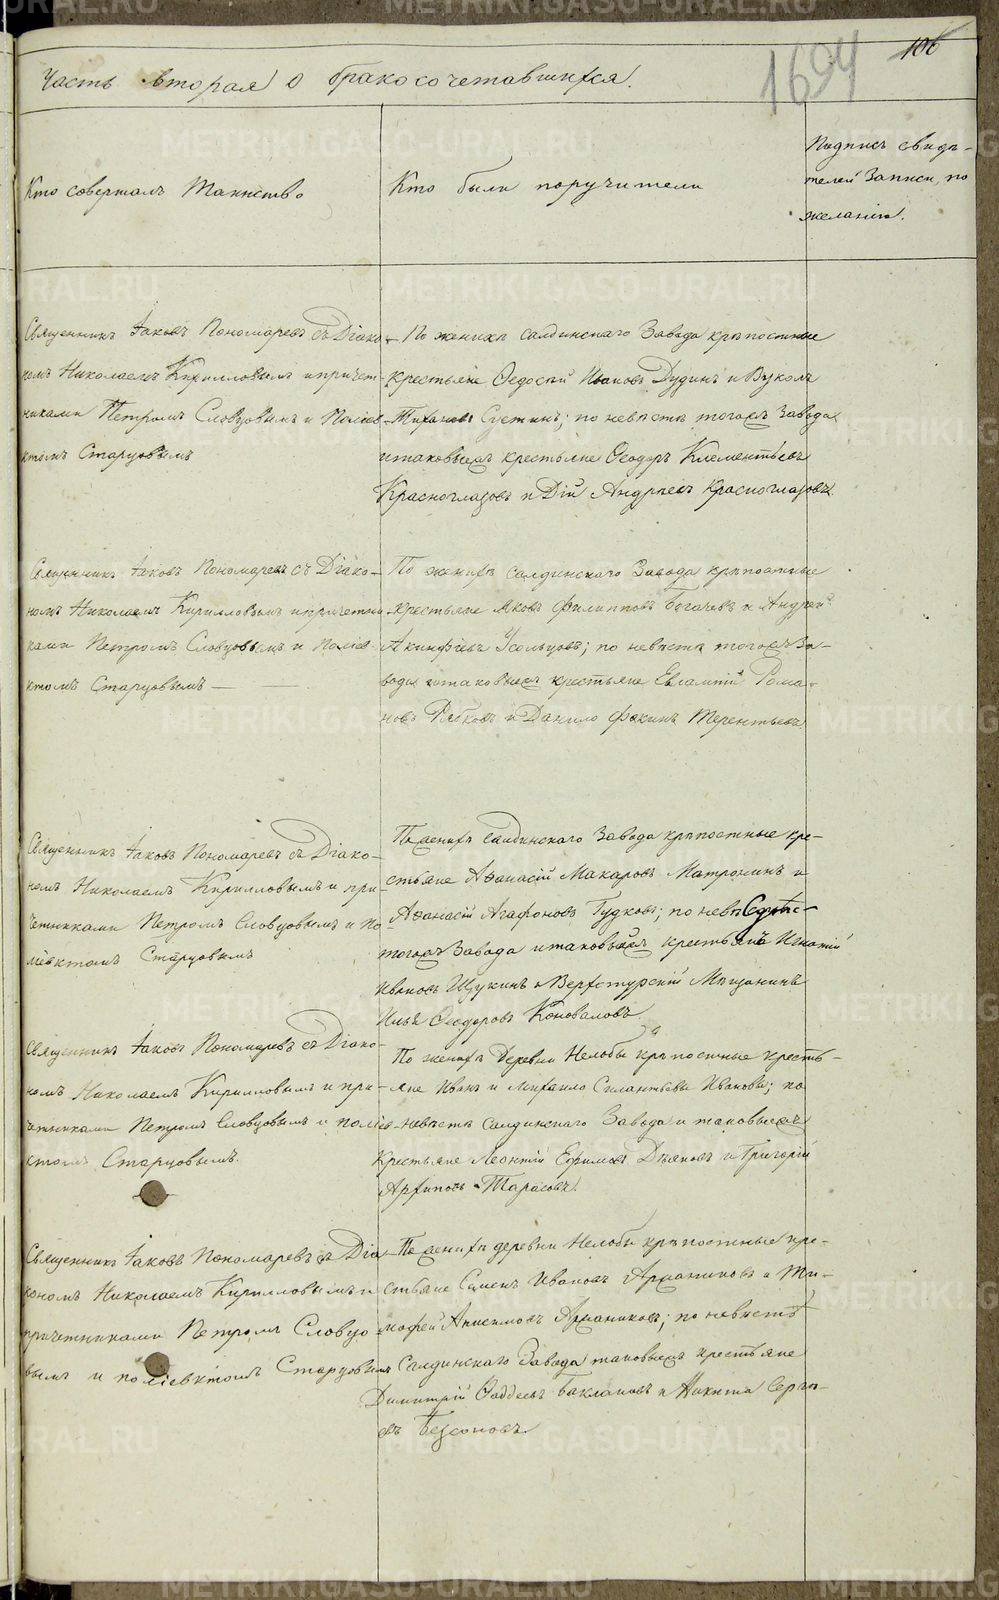 106
1694
Часть вторая о бракосочетавшихся.
Кто совершалъ Таинство
Кто были поручители
Подпись свидѣ-
телей Записи, по
желанію.
Священникъ Іаковъ Пономаревъ съ Діако-
номъ Николаемъ Кирилловымъ и причет-
никами Петромъ Словцовымъ и Поліев-
ктомъ Старцовымъ
По женихѣ Салдинскаго Завода крѣпостные
крестьяне Ѳедосѣй Ивановъ Дудинъ и Вуколъ
Тихановъ Сустинъ; по невѣстѣ тогожъ Завода
и таковыежъ крестьяне Ѳеодоръ Клементьевъ
Красноглазовъ и Дій Андреевъ Красноглазовъ.
Священникъ Іаковъ Пономаревъ съ Діако-
номъ Николаемъ Кирилловымъ и причетни-
ками Петромъ Словцовымъ и Поліев-
ктомъ Старцовымъ —
По женихѣ Салдинскаго Завода крѣпостные
крестьяне Яковъ Филипповъ Богачевъ и Андрей
Акинфіевъ Усольцовъ; по невѣстѣ тогожъ За-
вода и таковыежъ крестьяне Евлампій Рома-
новъ и Данило Фокинъ Терентьевъ
Священникъ Іаковъ Пономаревъ съ Діако-
номъ Николаемъ Кирилловымъ и при-
четниками Петромъ Словцовымъ и По
ліевктомъ Старцовымъ
По женихѣ Салдинскаго Завода крѣпостные кре-
стьяне Аѳанасій Макаровъ Матронинъ и
Аѳанасій Агафоновъ Гудковъ; по невѣстѣ
тогожъ Завода и таковыежъ крестьянъ Игнатій
Ивановъ Щукинъ и Верхотурскій Мѣщанинъ
Илья Ѳеодоровъ Коноваловъ
Священникъ Іаковъ Пономаревъ съ Діако-
номъ Николаемъ Кирилловымъ и при-
четниками Петромъ Словцовымъ и Поліев-
ктомъ Старцовымъ.
По женихѣ Деревни Нелобы крѣпостные кресть-
яне Иванъ и Михаило Силантьевы Ивановы; по
невѣстѣ Салдинскаго Завода и таковыежъ
крестьяне Леонтій Ефимовъ Дьяковъ и Григорій
Архиповъ Тарасовъ.
Священникъ Іаковъ Пономаревъ съ Діа-
кономъ Николаемъ Кирилловымъ и
причетниками Петромъ Словцо-
вымъ и Поліевктомъ Старцовымъ
По женихѣ деревни Нелобы крѣпостные кре-
стьяне Семенъ Ивановъ и Ти-
мофей Анисимовъ; по невѣстѣ
Салдинскаго Завода таковыежъ крестьяне
Димитрій Ѳаддеевъ Баклановъ и Никита Сергѣ-
евъ Безсоновъ